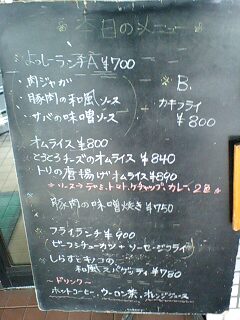 本日のメニュー
よっしーランチA ¥700
肉ジャガ
豚肉の和風ソース
サバの味噌ソース
B.
カキフライ
¥800
オムライス ¥800
とろとろチーズのオムライス ¥840
トリの唐揚げオムライス ¥890
豚肉の味噌焼き ¥750
フライランチ ¥900
ビーフシチューカツ+ソーセージフライ
しらすとキノコの
和風スパゲッティ ¥780
~ドリンク~
ホットコーヒー、ウーロン茶、オレンジジュース